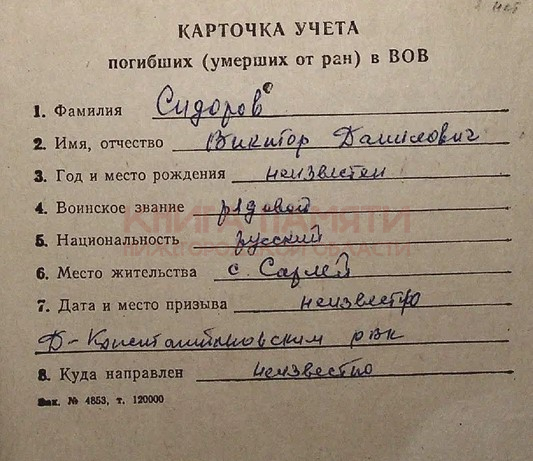 нет
КАРТОЧКА УЧЕТА
погибших (умерших от ран) в ВОВ
1. Фамилия Сидоров
2. Имя, отчество Виктор Данилович
3. Год и место рождения неизвестен
4. Воинское звание рядовой
КНИГА ПАМЯТИ
5. Национальность русский
НИЖЕГОРОДСКОЙ ОБЛАСТИ
6. Место жительства с. Сарлей
7. Дата и место призыва неизвестно
Д-Константиновским рвк
8. Куда направлен неизвестно
Зак. № 4853, т. 120000